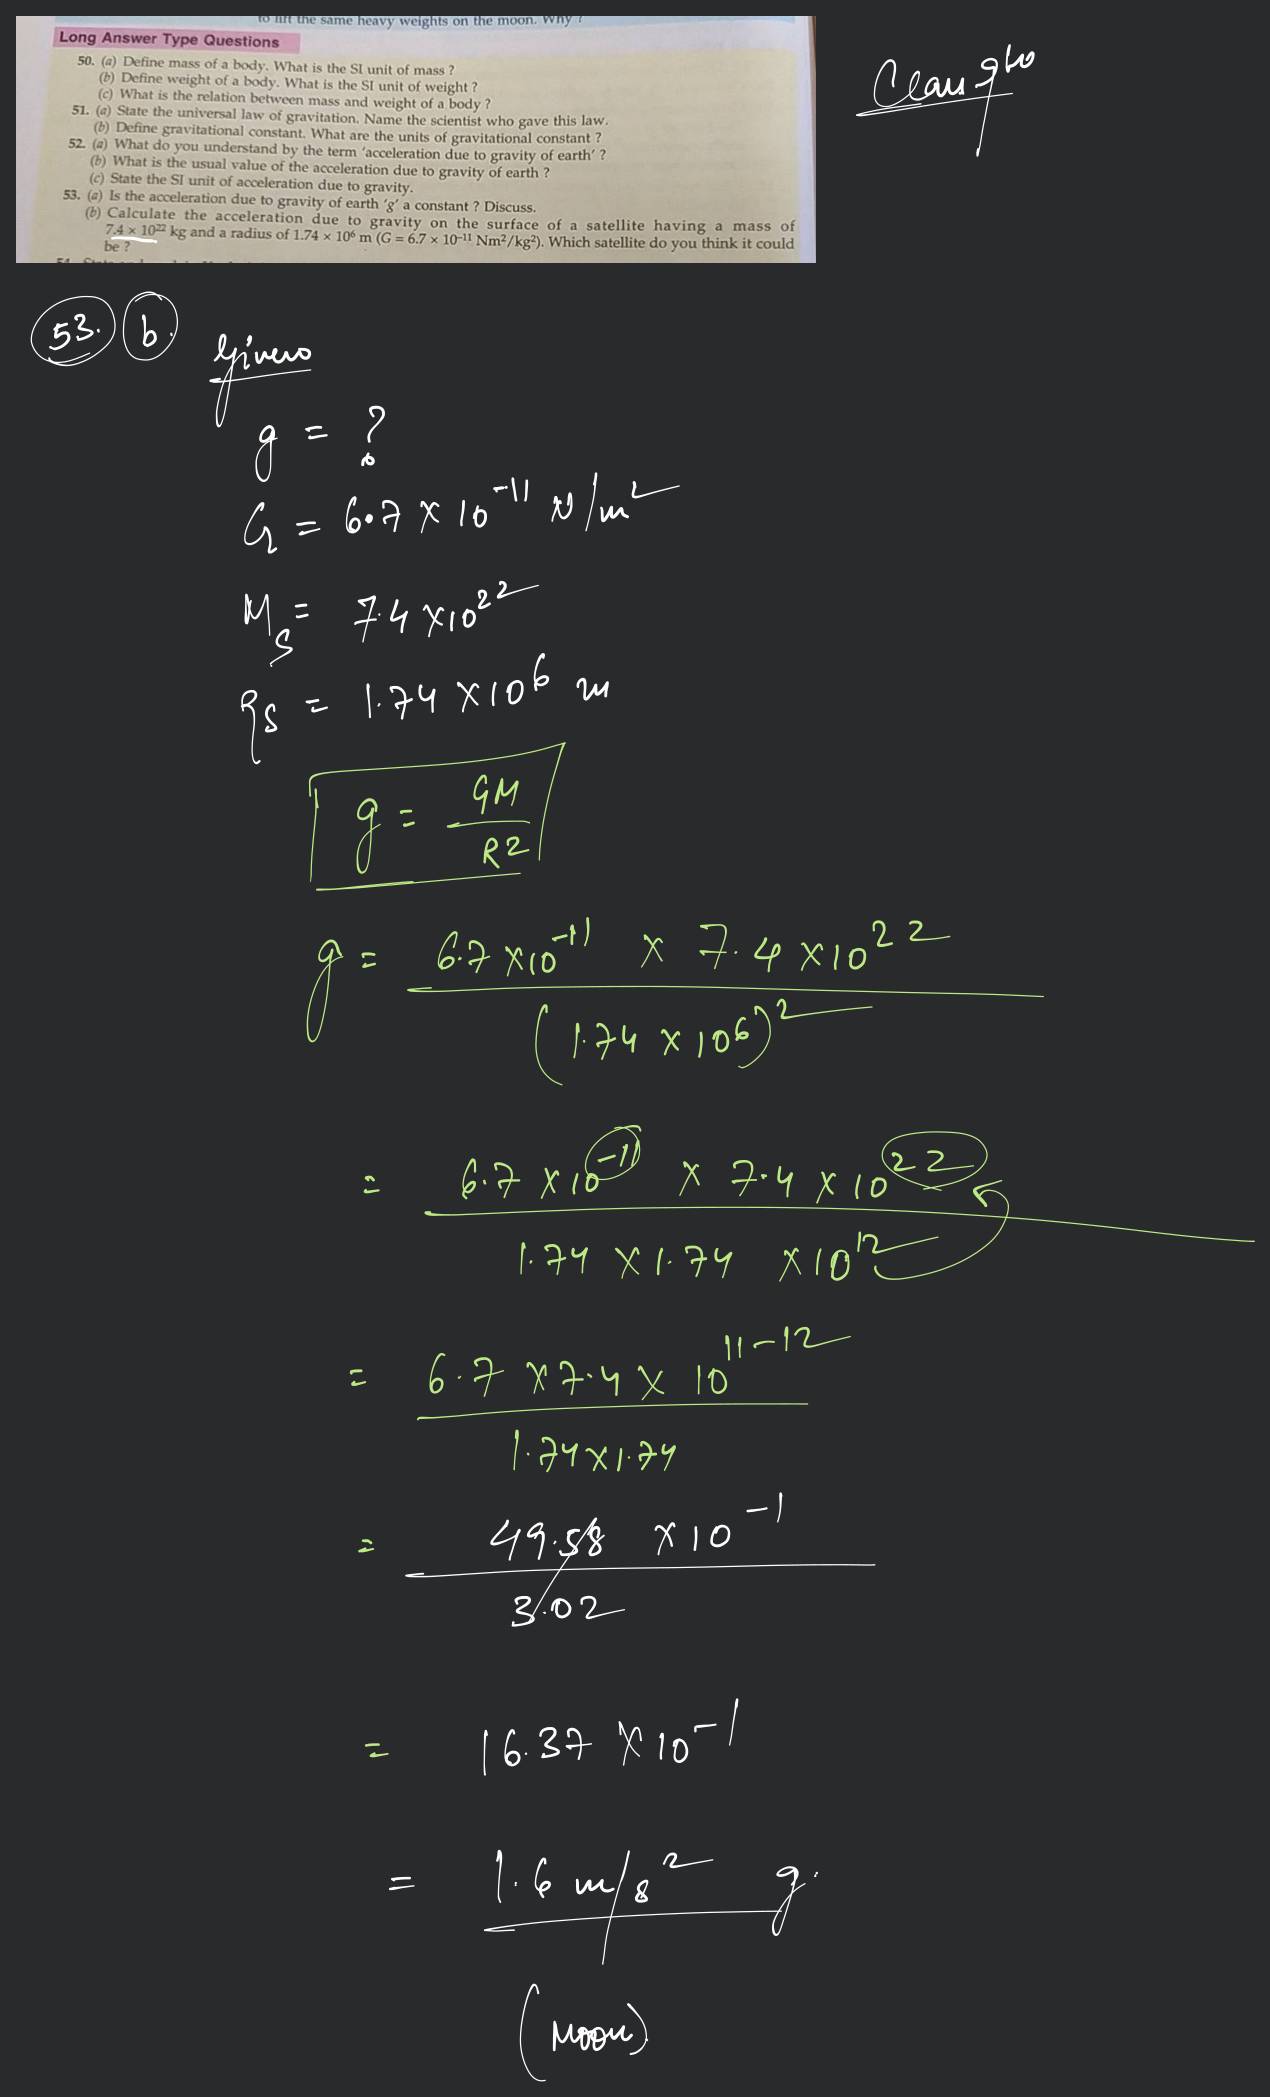 to lift the same heavy weights on the moon. Why ?
Long Answer Type Questions
50. (a) Define mass of a body. What is the SI unit of mass ?
(b) Define weight of a body. What is the SI unit of weight ?
(c) What is the relation between mass and weight of a body ?
51. (a) State the universal law of gravitation. Name the scientist who gave this law.
(b) Define gravitational constant. What are the units of gravitational constant ?
52. (a) What do you understand by the term 'acceleration due to gravity of earth' ?
(b) What is the usual value of the acceleration due to gravity of earth ?
(c) State the SI unit of acceleration due to gravity.
53. (a) Is the acceleration due to gravity of earth 'g' a constant ? Discuss.
(b) Calculate the acceleration due to gravity on the surface of a satellite having a mass of
7.4 × 10²² kg and a radius of 1.74 × 10⁶ m (G = 6.7 × 10⁻¹¹ Nm²/kg²). Which satellite do you think it could
be ?
53. b.
g = ?
G = 6.7 × 10⁻¹¹ N/m²
M_S = 7.4 × 10²²
R_S = 1.74 × 10⁶ m
g = GM
R2
g = 6.7 × 10⁻¹¹ × 7.4 × 10²²
(1.74 × 10⁶)²
= 6.7 × 10⁻¹¹ × 7.4 × 10²²
1.74 × 1.74 × 10¹²
= 6.7 × 7.4 × 10¹¹⁻¹²
1.74 × 1.74
= 49.58 × 10⁻¹
3.02
= 16.37 × 10⁻¹
= 1.6 m/s² g.
(Moon)